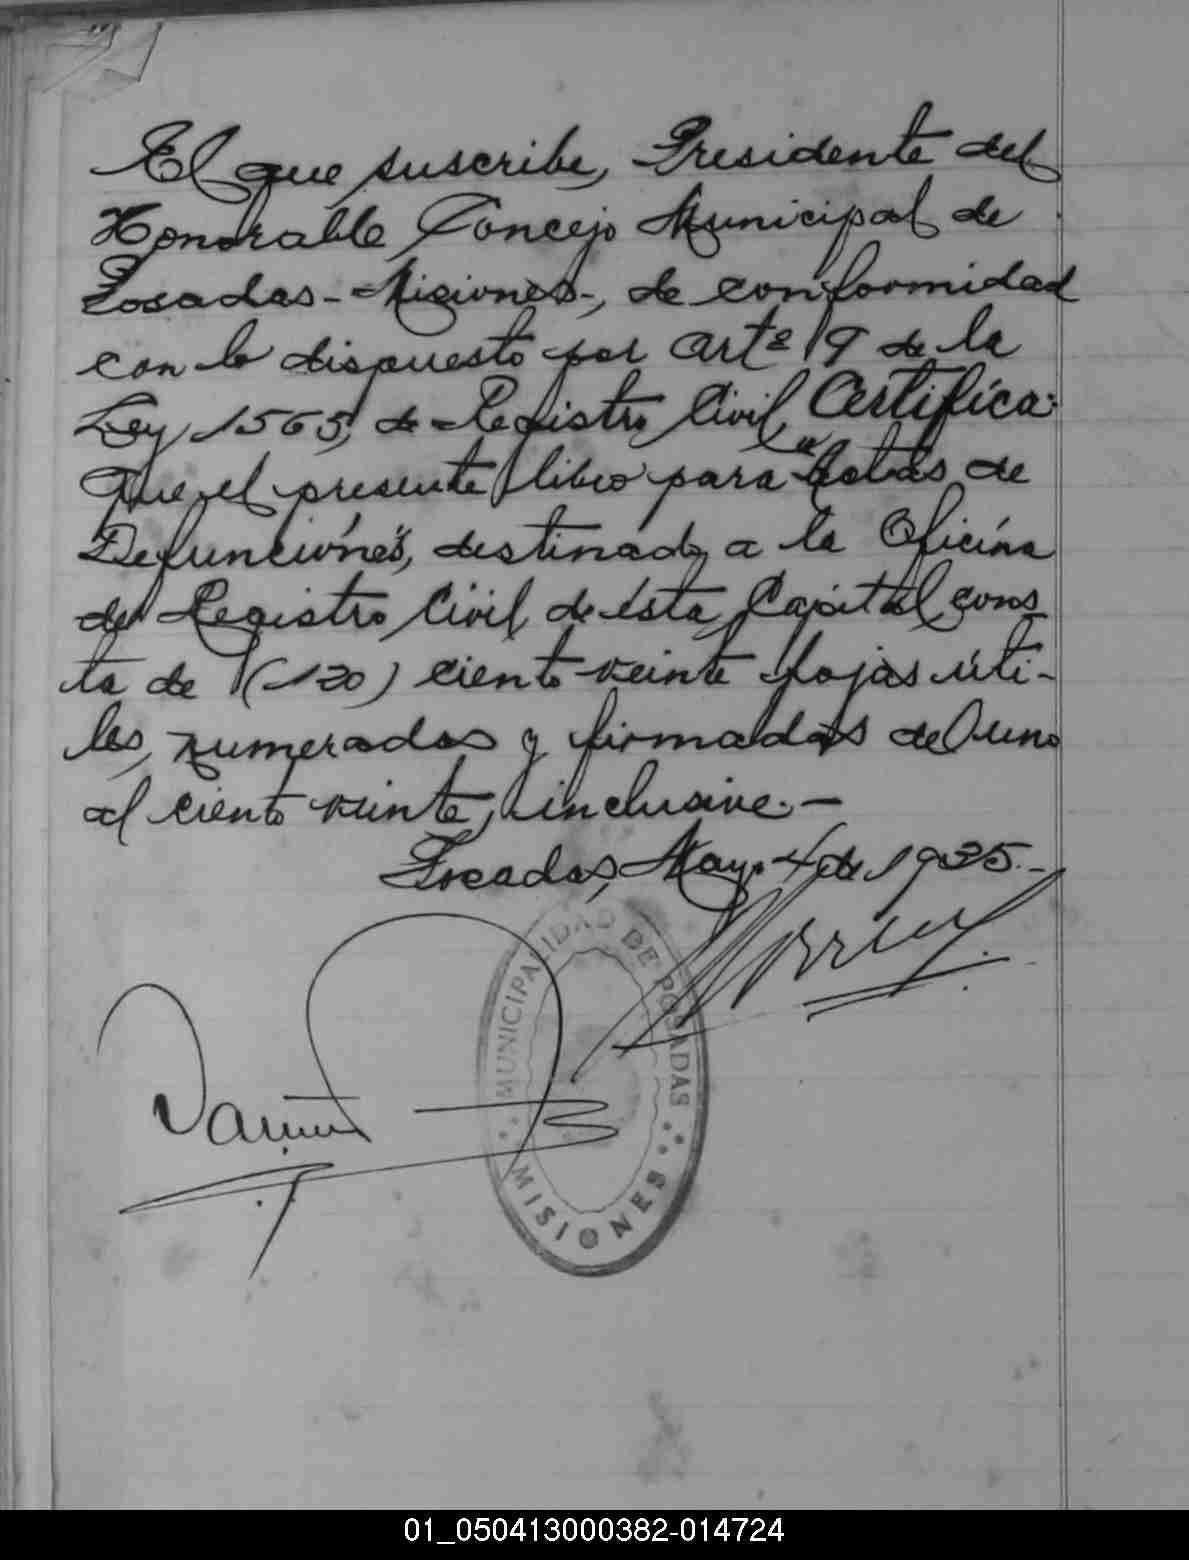 El que suscribe, Presidente del
Honorable Concejo Municipal de
Posadas-Misiones-, de conformidad
con lo dispuesto por artº 9 de la
Ley 1565, de Registro Civil, Certifica:
Que el presente libro para "Actas de
Defunciónes", destinado a la Oficina
de Registro Civil de ésta Capital cons
ta de (120) ciento veinte fojas úti-
les, numeradas y firmadas del uno
al ciento veinte, inclusive.-
Posadas, Mayo 4 de 1925.-
MUNICIPALIDAD DE POSADAS
MISIONES
01_050413000382-014724